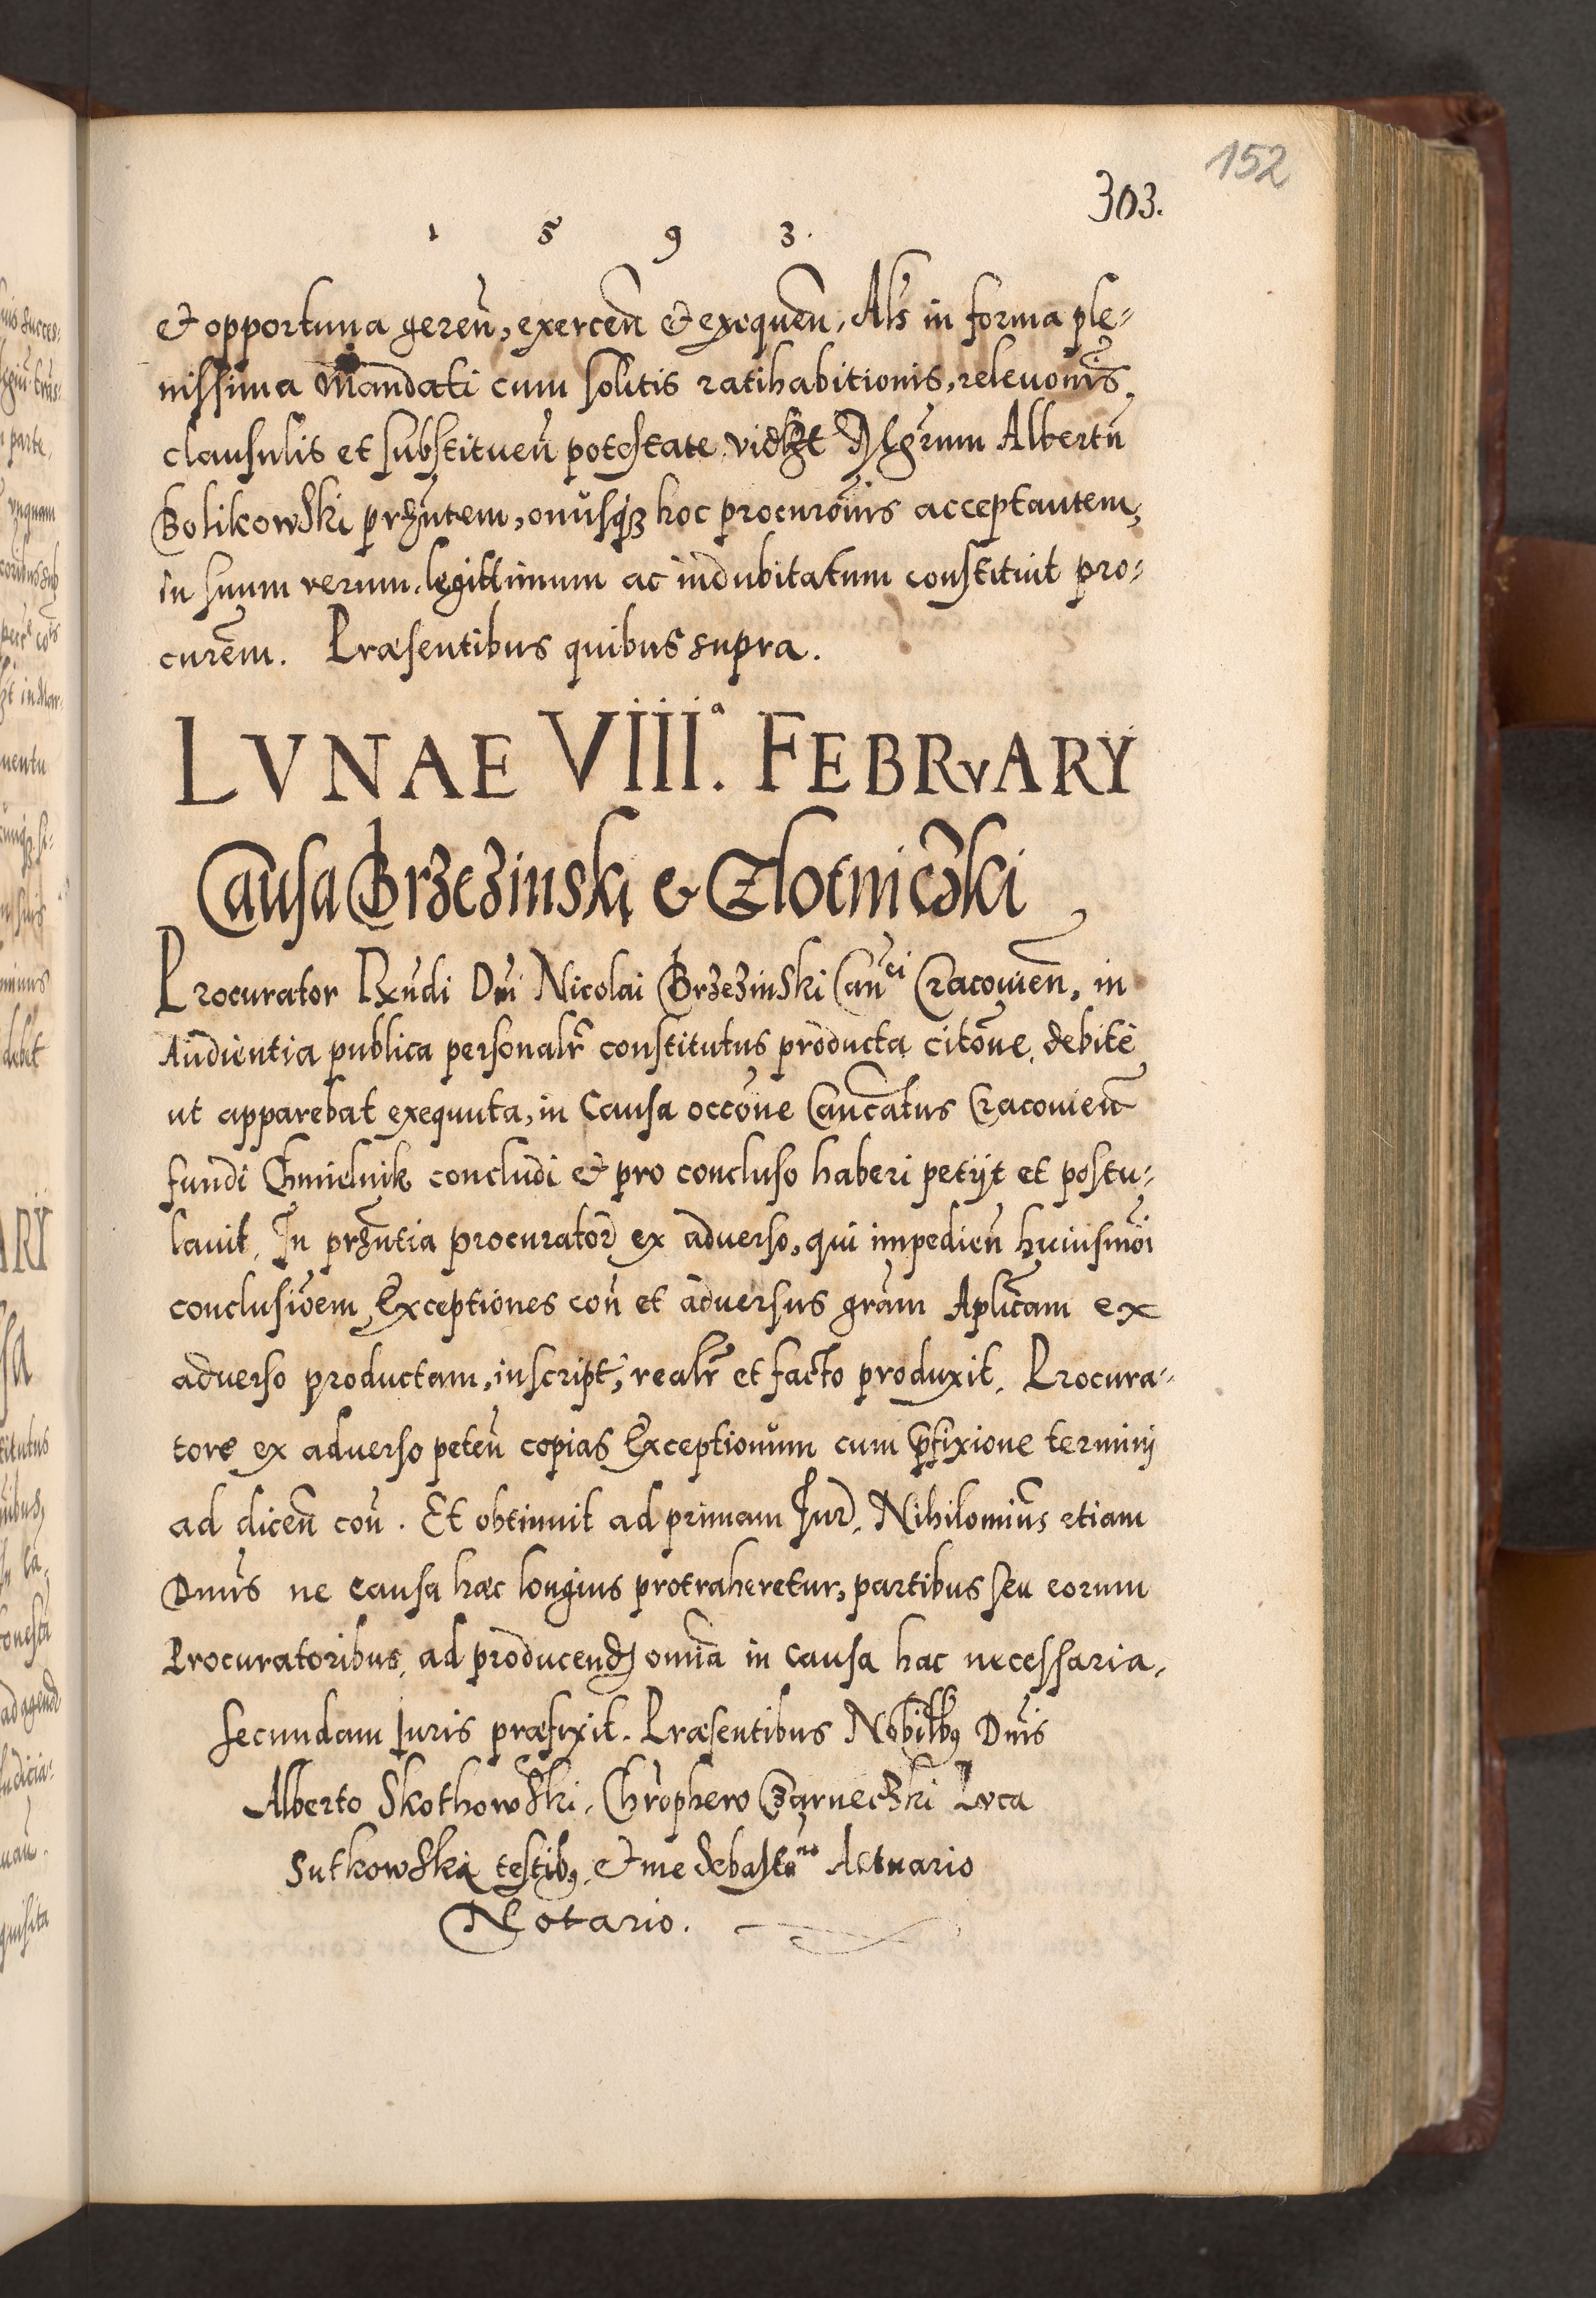 152
303.
1 5 9 3.
et opportuna gereñ, exerceñ et exequeñ, Als in forma ple-
nissima Mandati cum solitis ratihabitionis, releuonis,
clausulis et substitueñ potestate, vidzt Mgrum Albertũ
Bolikowski prñtem, onusq3 hoc procurõnis acceptantem,
in suum verum, legittimum ac indubitatum constituit pro-
curẽm. Præsentibus quibus supra.
LVNAE VIIIIa. FEBRVARY
Causa Brzezinski & Zlotniczki
Procurator Rñdi Dñi Nicolai Brzezinski Canci Cracouieñ, in
Audientia publica personalr constitutus producta citõne, debitè
ut apparebat exequuta, in Causa occõne Canc̃atus Cracouieñ
fundi Chmielnik concludi et pro concluso haberi petijt et postu-
lauit, In prñtia procurator ex aduerso, qui impedieñ huiusmõi
conclusiõem, Exceptiones coñ et aduersus grãm Aplicam ex
aduerso productam, in script, realr et facto produxit, Procura-
tore ex aduerso peteñ copias Exceptionum cum p̃fixione termini
ad diceñ coñ. Et obtinuit ad primam Jur, Nihilominus etiam
Dnus ne causa hæc longius protraheretur, partibus seu eorum
Procuratoribus, ad producend omnia in causa hac necessaria,
secundam Juris præfixit. Præsentibus Nobilibq Dnis
Alberto Skothowski, Chrophero Czarneczki Luca
Sutkowski testibq, et me Sebastno Actuario
Notario.